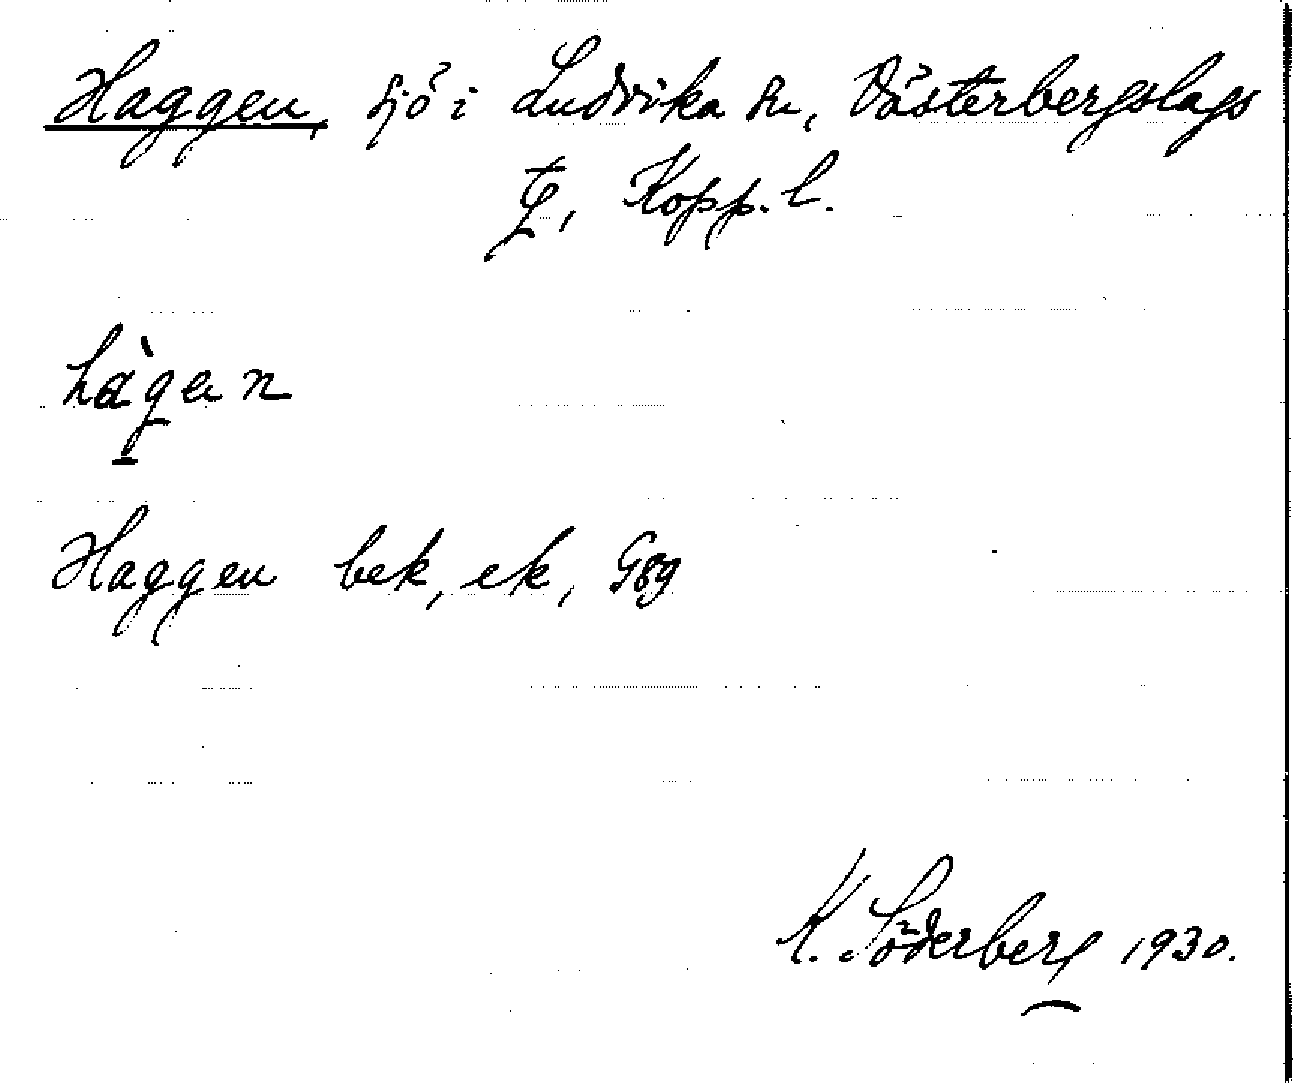 Haggen, sjö i Ludvika sn, Västerbergslags
tg, Kopp. l.
hàgen
Haggen bek, ek, Gsg
K. Söderberg 1930.